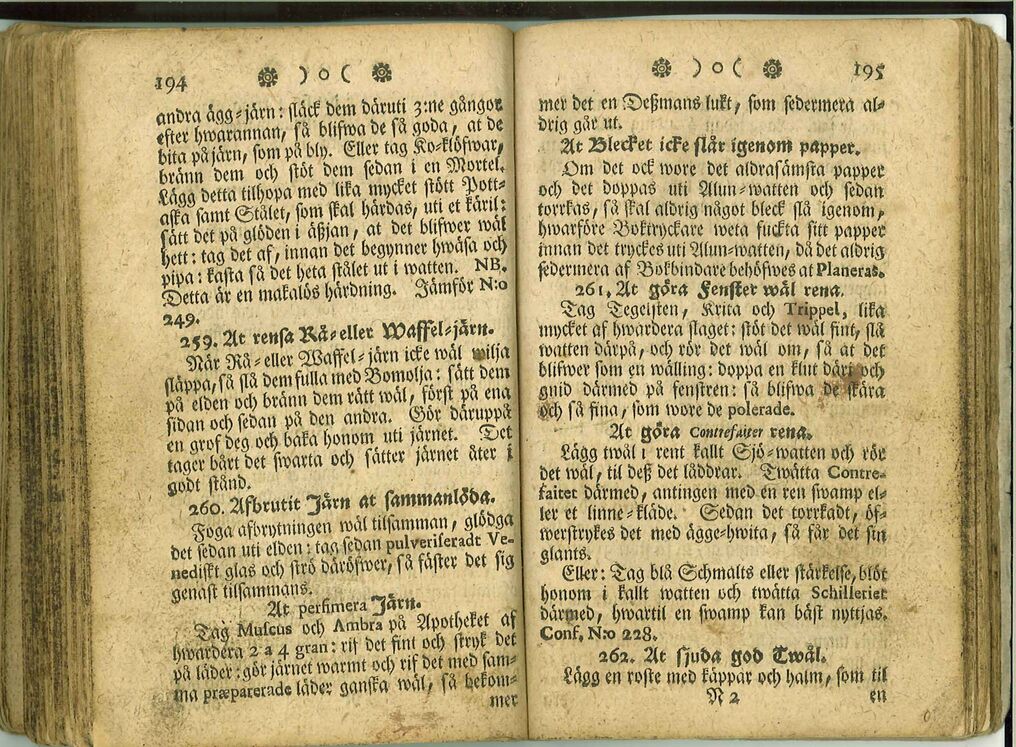 194
andra ägg-järn: släck dem däruti 3:ne gångor
efter hwarannan, så blifwa de så goda, at de
bita på järn, som på bly. Eller tag Ko-klöfwar,
bränn dem och stöt dem sedan i en Mortel.
Lägg detta tilhopa med lika mycket stött Pott-
aska samt Stålet, som skal härdas, uti et käril:
sätt det på glöden i äßjan, at det blifwer wäl
hett: tag det af, innan det begynner hwäsa och
pipa: kasta så det heta stålet ut i watten. NB.
Detta är en makalös härdning. Jämför N:o
249.
259. At rensa Rå- eller Waffel-järn.
När Rå- eller Waffel-järn icke wäl wilja
släppa, så slå dem fulla med Bomolja: sätt dem
på elden och bränn dem rätt wäl, först på ena
sidan och sedan på den andra. Gör däruppå
en grof deg och baka honom uti järnet. Det
tager bårt det swarta och sätter järnet åter i
godt stånd.
260. Afbrutit Järn at sammanlöda.
Foga afbrytningen wäl tilsamman, glödga
det sedan uti elden: tag sedan pulveriseradt Ve-
nediskt glas och strö däröfwer, så fäster det sig
genast tilsammans.
At perfimera Järn.
Tag Muscus och Ambra på Apotheket af
hwardera 2 a 4 gran: rif det fint och stryk det
på läder: gör järnet warmt och rif det med sam-
ma præparerade läder ganska wäl, så bekom-
mer
195
mer det en Deßmans lukt, som sedermera al-
drig går ut.
At Blecket icke slår igenom papper.
Om det ock wore det aldrasämsta papper
och det doppas uti Alun-watten och sedan
torrkas, så skal aldrig något bleck slå igenom,
hwarföre Boktryckare weta fuckta sitt papper
innan det tryckes uti Alun-watten, då det aldrig
sedermera af Bokbindare behöfwes at Planeras.
261. At göra Fenster wäl rena.
Tag Tegelsten, Krita och Trippel, lika
mycket af hwardera slaget: stöt det wäl fint, slå
watten därpå, och rör det wäl om, så at det
blifwer som en wälling: doppa en klut däri och
gnid därmed på fenstren: så blifwa de skära
och så fina, som wore de polerade.
At göra Contrefaiter rena.
Lägg twål i rent kallt Sjö-watten och rör
det wäl, til deß det läddrar. Twätta Contre-
faitet därmed, antingen med en ren swamp el-
ler et linne-kläde. Sedan det torrkadt, öf-
werstrykes det med ägge-hwita, så får det sin
glants.
Eller: Tag blå Schmalts eller stärkelse, blöt
honom i kallt watten och twätta Schilleriet
därmed, hwartil en swamp kan bäst nyttjas.
Conf. N:o 228.
262. At sjuda god Twål.
Lägg en roste med käppar och halm, som til
N 2
en